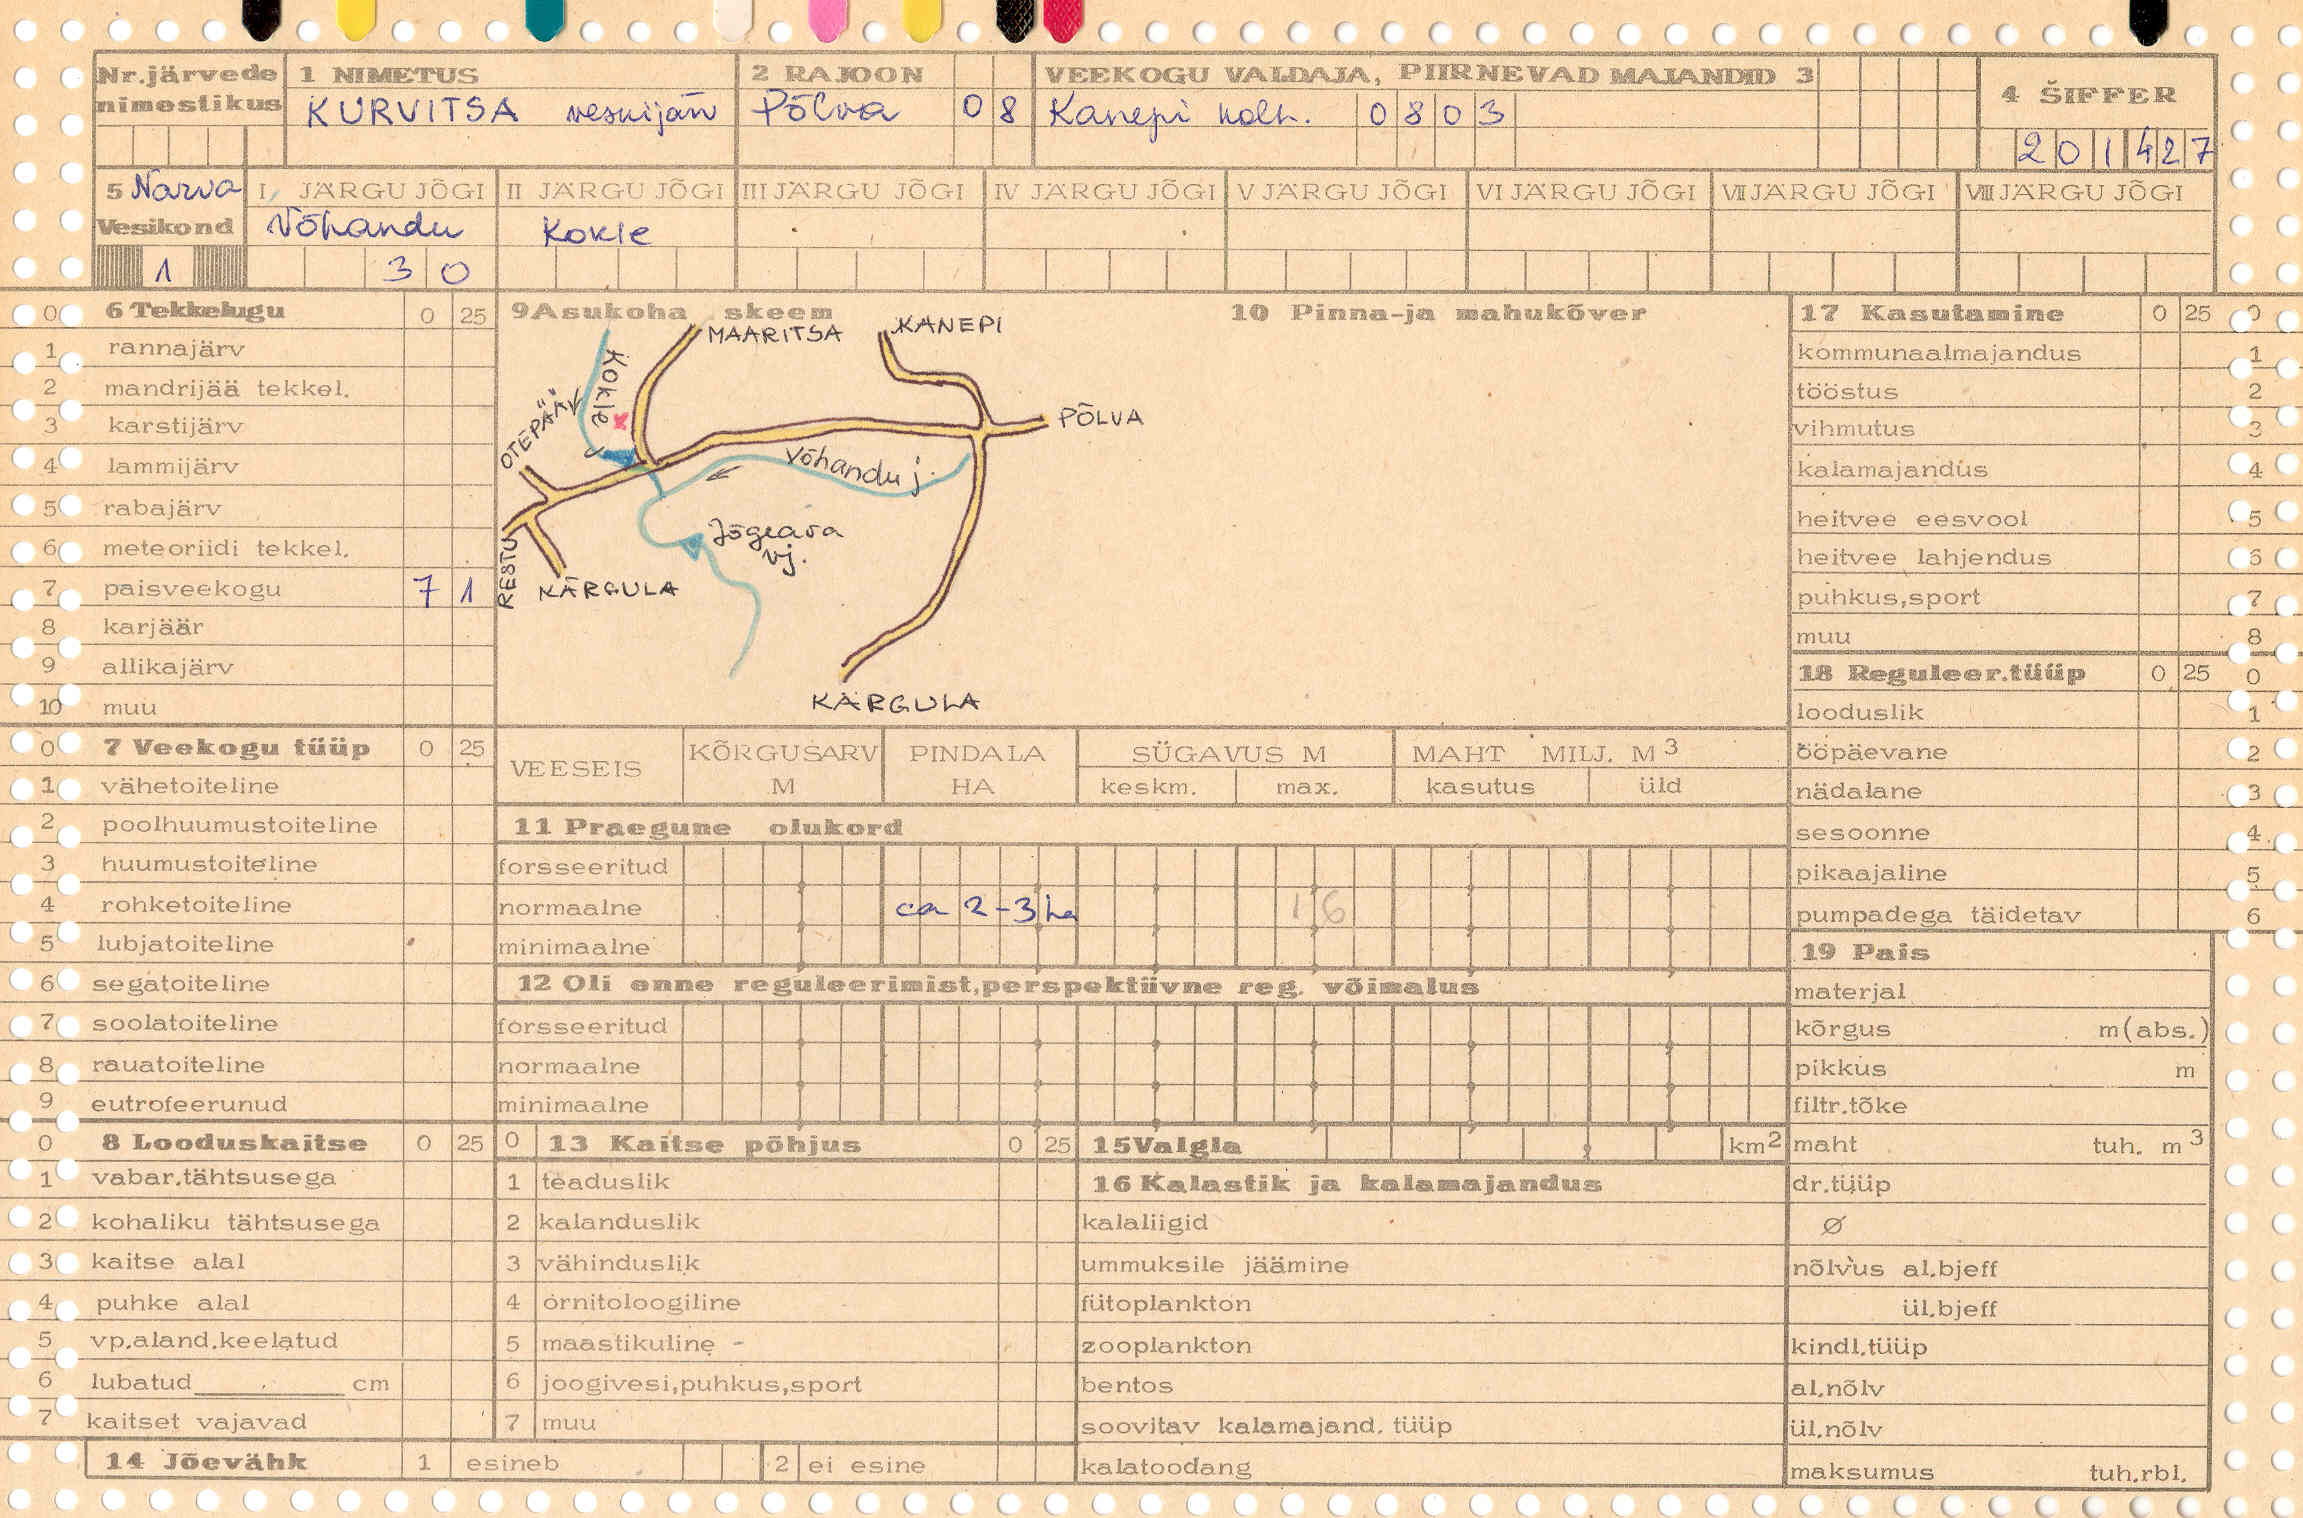 Nr.järvede nimestikus
1 NIMETUS
KURVITSA veskijärv
2 RAJOON
Põlva 08
VEEKOGU VALDAJA, PIIRNEVAD MAJANDID 3
Kanepi kolh. 0803
4 ŠIFFER
201427
5 Narva Vesikond
1
I JÄRGU JÕGI
Võhandu
30
II JÄRGU JÕGI
Kokle
III JÄRGU JÕGI
IV JÄRGU JÕGI
V JÄRGU JÕGI
VI JÄRGU JÕGI
VII JÄRGU JÕGI
VIII JÄRGU JÕGI
0 6 Tekkelugu 0 25
1 rannajärv
2 mandrijää tekkel.
3 karstijärv
4 lammijärv
5 rabajärv
6 meteoriidi tekkel.
7 paisveekogu 7 1
8 karjäär
9 allikajärv
10 muu
0 7 Veekogu tüüp 0 25
1 vähetoiteline
2 poolhuumustoiteline
3 huumustoiteline
4 rohketoiteline
5 lubjatoiteline
6 segatoiteline
7 soolatoiteline
8 rauatoiteline
9 eutrofeerunud
0 8 Looduskaitse 0 25
1 vabar.tähtsusega
2 kohaliku tähtsusega
3 kaitse alal
4 puhke alal
5 vp.aland.keelatud
6 lubatud cm
7 kaitset vajavad
14 Jõevähk 1 esineb 2 ei esine
9 Asukoha skeem
MAARITSA
KANEPI
Kokle
OTEPÄÄ
PÕLVA
Võhandu j.
Jõgeara vj.
RESTU
KÄRGULA
KÄRGULA
10 Pinna-ja mahukõver
VEESEIS
KÕRGUSARV M
PINDALA HA
SÜGAVUS M
keskm. max.
MAHT MILJ. M3
kasutus üld
11 Praegune olukord
forsseeritud
normaalne ca 2-3 ha 16
minimaalne
12 Oli enne reguleerimist,perspektiivne reg. võimalus
forsseeritud
normaalne
minimaalne
0 13 Kaitse põhjus 0 25
1 teaduslik
2 kalanduslik
3 vähinduslik
4 ornitoloogiline
5 maastikuline -
6 joogivesi,puhkus,sport
7 muu
15 Valgla km2
16 Kalastik ja kalamajandus
kalaliigid
ummuksile jäämine
fütoplankton
zooplankton
bentos
soovitav kalamajand. tüüp
kalatoodang
17 Kasutamine 0 25 0
kommunaalmajandus 1
tööstus 2
vihmutus 3
kalamajandus 4
heitvee eesvool 5
heitvee lahjendus 6
puhkus,sport 7
muu 8
18 Reguleer.tüüp 0 25 0
looduslik 1
ööpäevane 2
nädalane 3
sesoonne 4
pikaajaline 5
pumpadega täidetav 6
19 Pais
materjal
kõrgus m(abs.)
pikkus m
filtr.tõke
maht tuh. m3
dr.tüüp
Ø
nõlvus al.bjeff
ül.bjeff
kindl.tüüp
al.nõlv
ül.nõlv
maksumus tuh.rbl.